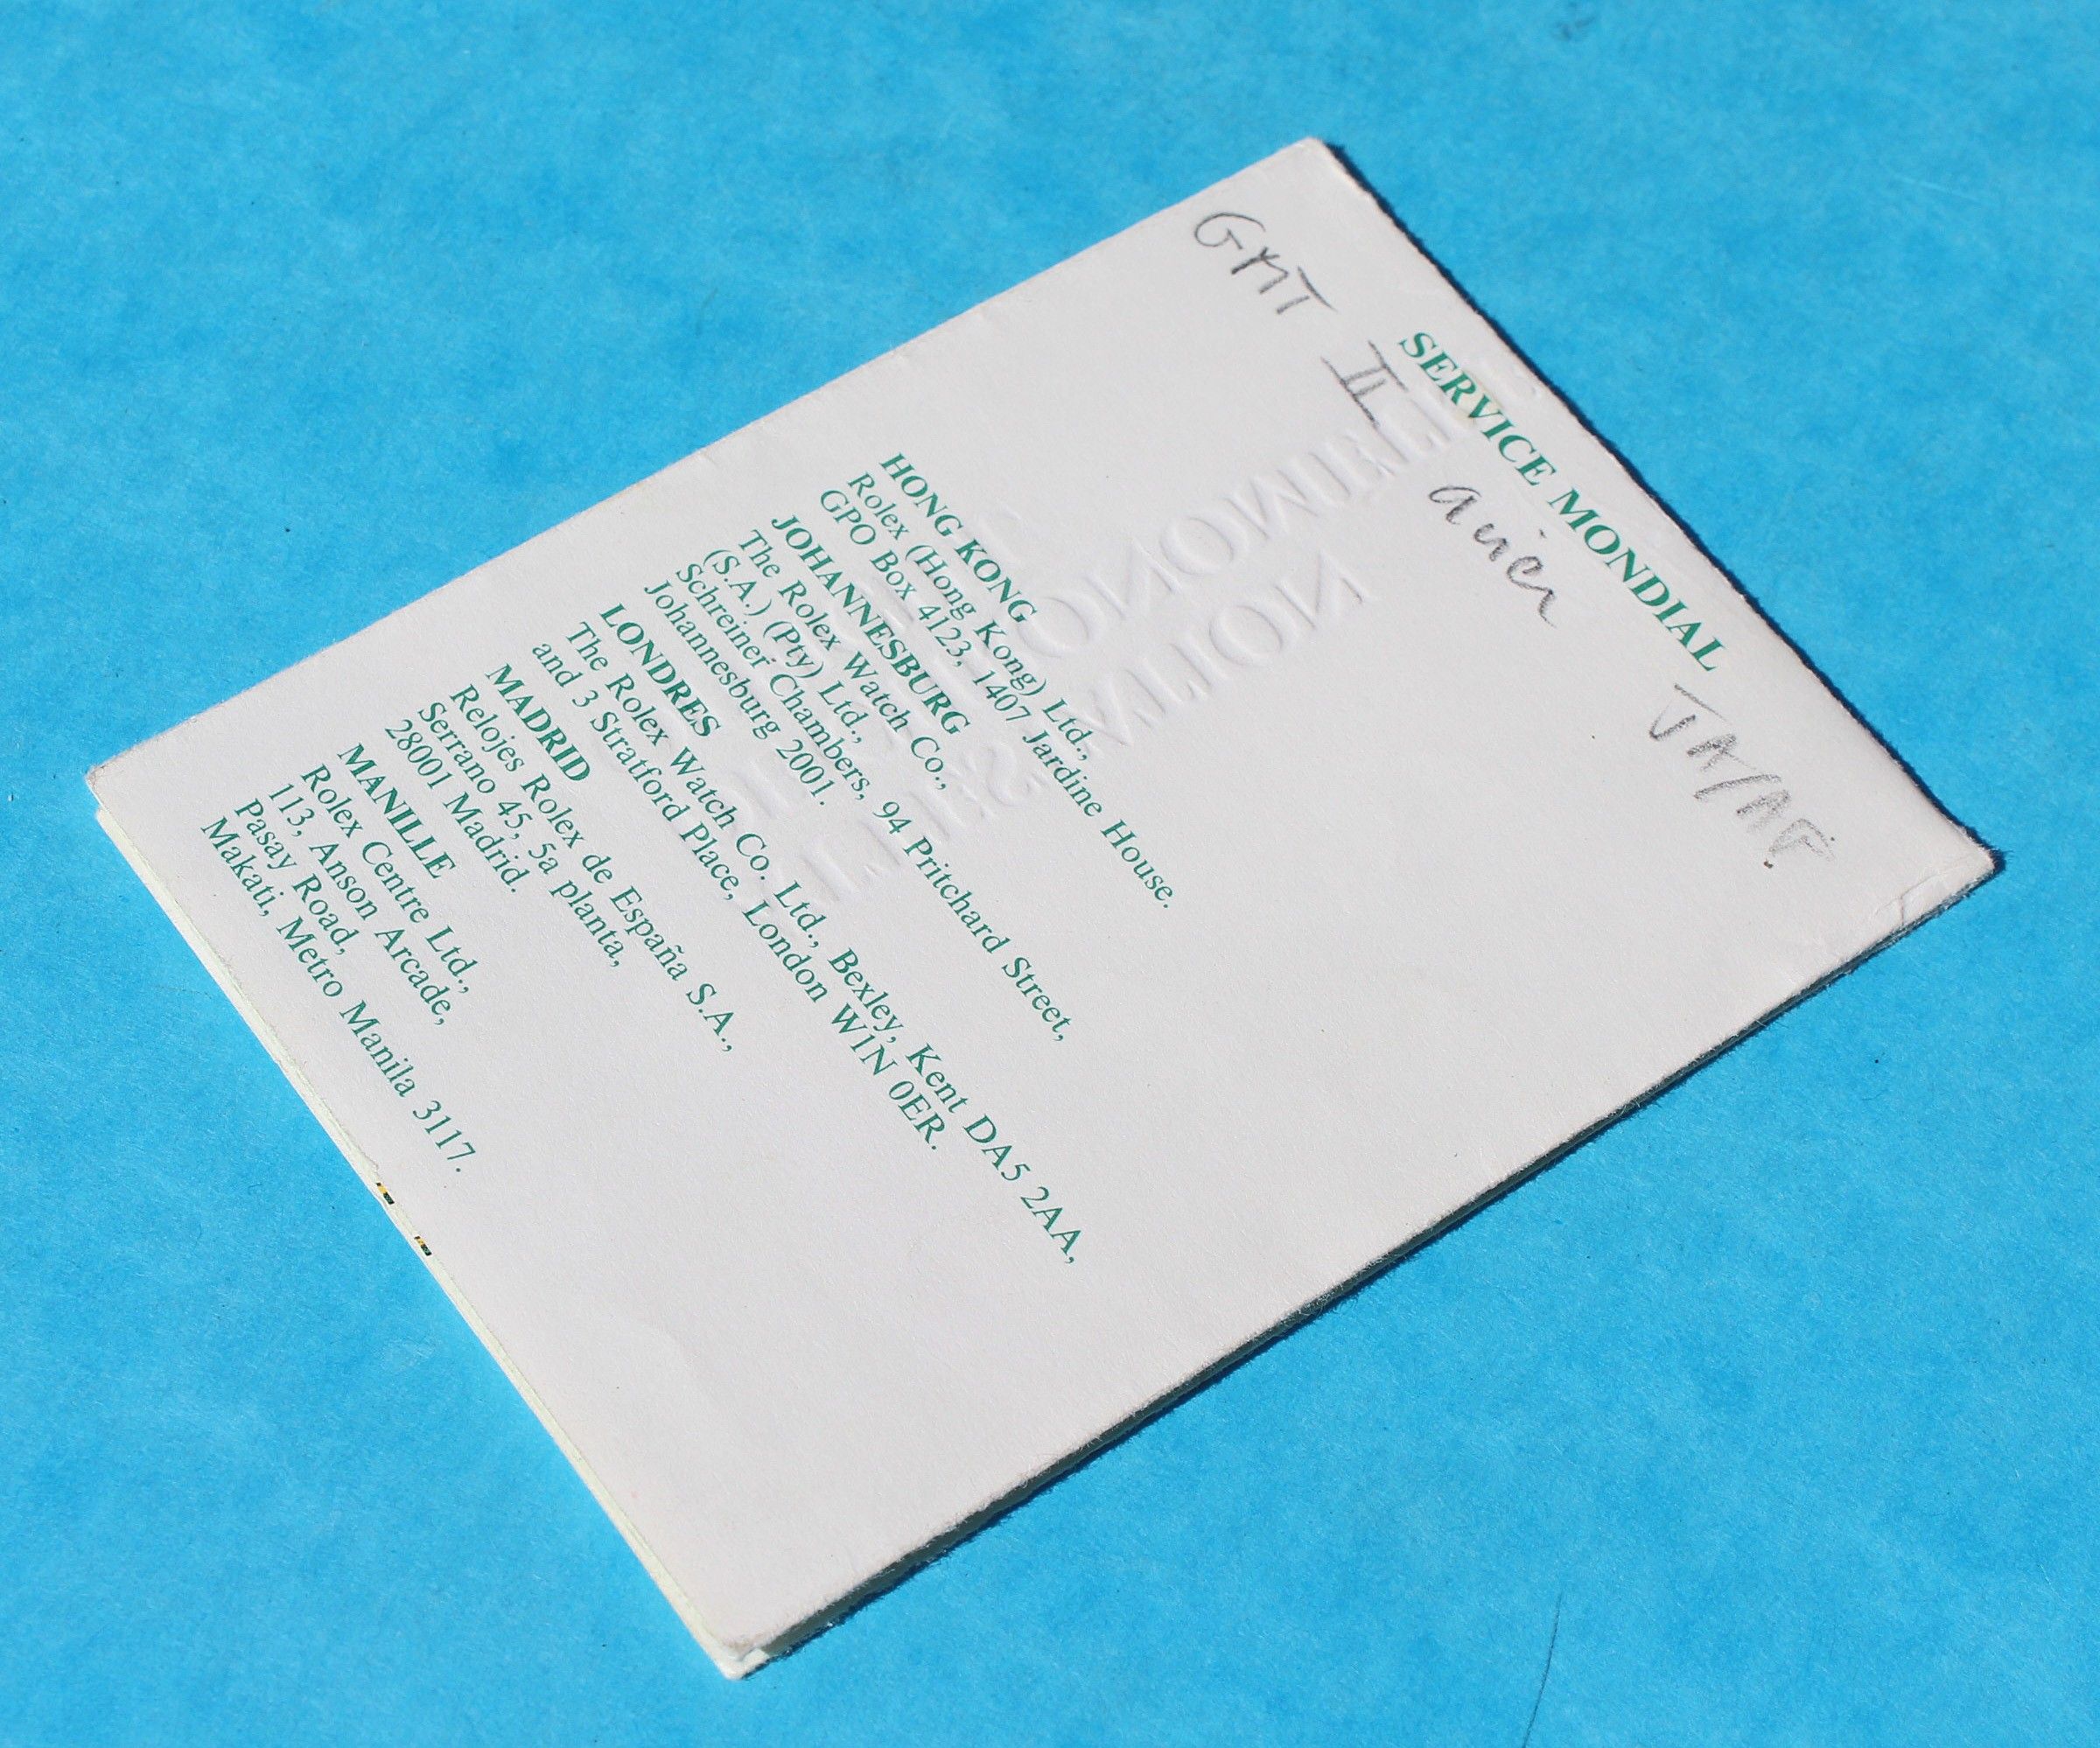 SERVICE MONDIAL
GMT II acier
HONG KONG
Rolex (Hong Kong) Ltd.,
GPO Box 4123, 1407 Jardine House.
JOHANNESBURG
The Rolex Watch Co.,
(S.A.) (Pty) Ltd.,
Schreiner Chambers, 94 Pritchard Street,
Johannesburg 2001.
LONDRES
The Rolex Watch Co. Ltd., Bexley, Kent DA5 2AA,
and 3 Stratford Place, London W1N 0ER.
MADRID
Relojes Rolex de España S.A.,
Serrano 45, 5a planta,
28001 Madrid.
MANILLE
Rolex Centre Ltd.,
113, Anson Arcade,
Pasay Road,
Makati, Metro Manila 3117.